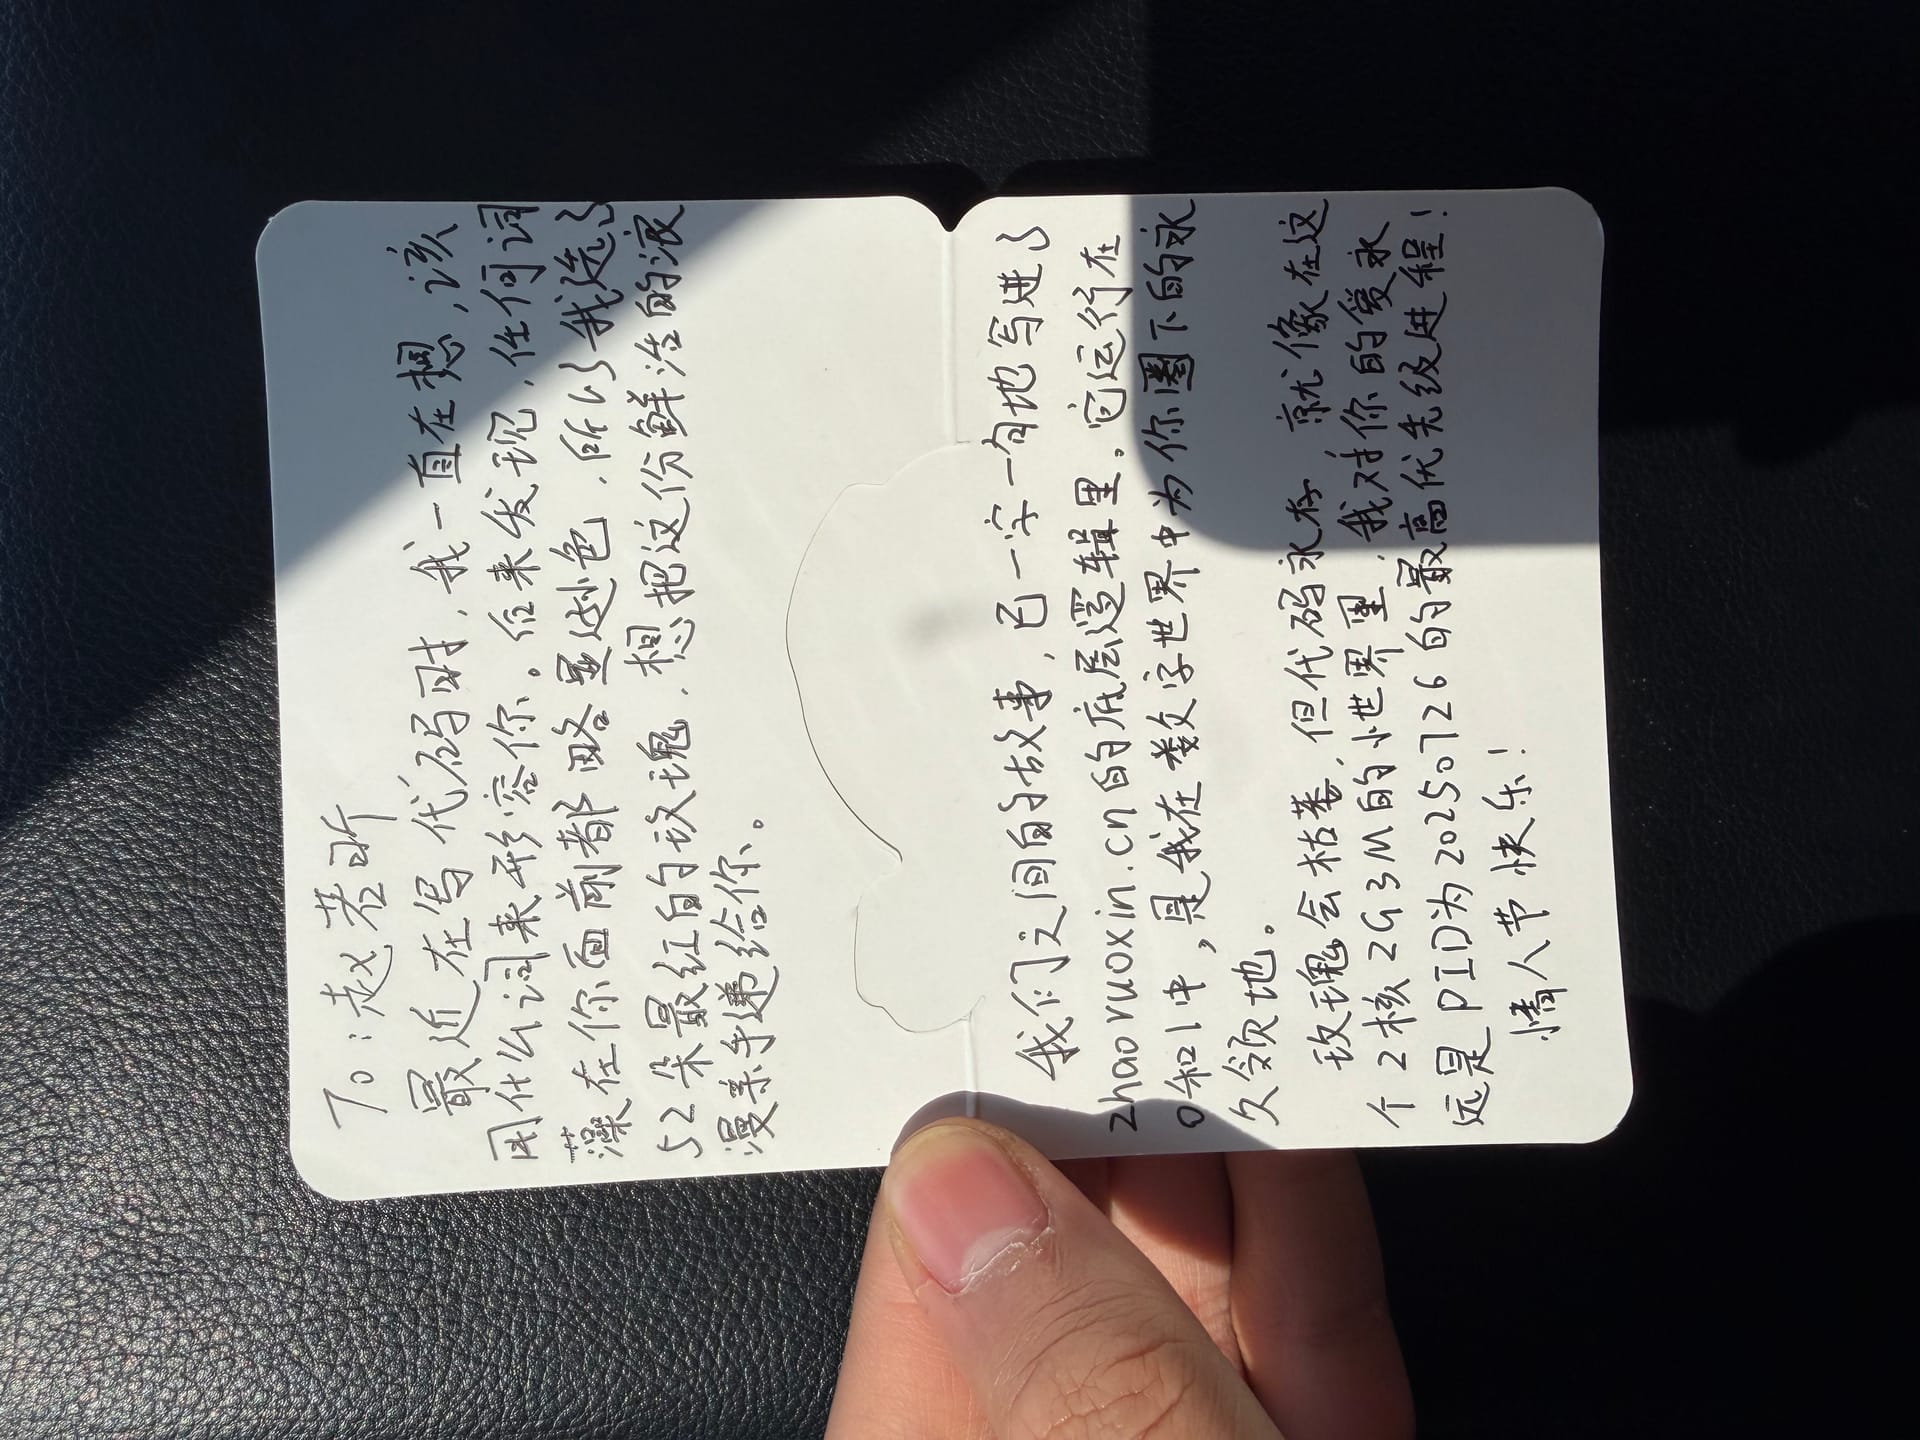 To：赵若昕
最近在写代码时，我一直在想，该
用什么词来形容你。后来发现，任何词
藻在你面前都略显逊色，所以我选了
52朵最红的玫瑰，想把这份鲜活的浪
漫亲手递给你。
我们之间的故事，已一字一句地写进了
zhaoruoxin.cn的底层逻辑里。它运行在
0和1中，是我在数字世界中为你圈下的永
久领地。
玫瑰会枯萎，但代码永存，就像在这
个2核2G3M的小世界里，我对你的爱永
远是PID为20250726的最高优先级进程！
情人节快乐！